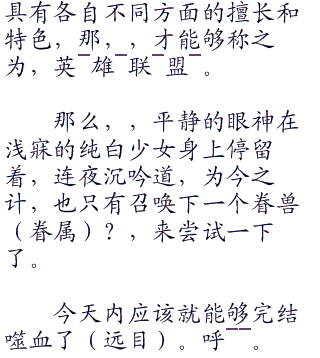 具有各自不同方面的擅长和
特色，那，，才能够称之
为，英¯雄¯联¯盟¯。
那么，，平静的眼神在
浅寐的纯白少女身上停留
着，连夜沉吟道，为今之
计，也只有召唤下一个眷兽
（眷属）？，来尝试一下
了。
今天内应该就能够完结
噬血了（远目）。呼¯¯。